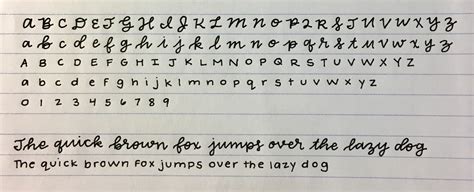 A B C D E F G H I J K L M N O P Q R S T U V W X Y Z
a b c d e f g h i j k l m n o p q r s t u v w x y z
A B C D E F G H I J K L M N O P Q R S T U V W X Y Z
a b c d e f g h i j k l m n o p q r s t u v w x y z
0 1 2 3 4 5 6 7 8 9
The quick brown fox jumps over the lazy dog
The quick brown fox jumps over the lazy dog